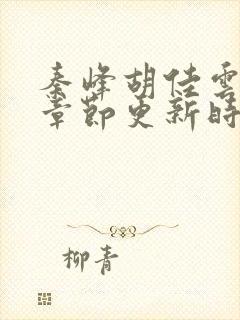 秦峰胡佳雲
章節更新時
柳青